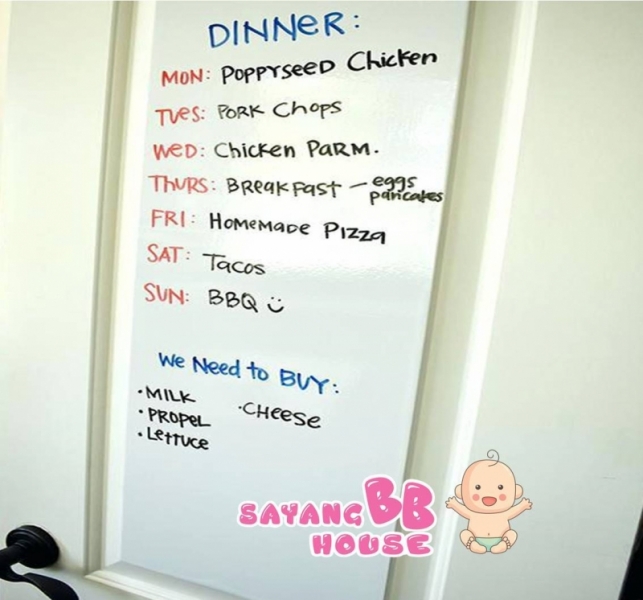 DINNER:
MON: POPPYSEED CHICKEN
TUES: PORK CHOPS
WED: CHICKEN PARM.
THURS: BREAKFAST – eggs
pancakes
FRI: HOMEMADE PIZZA
SAT: TACOS
SUN: BBQ ☺
We Need to BUY:
· MILK
· CHEESE
· PROPEL
· LETTUCE
SAYANG BB
HOUSE